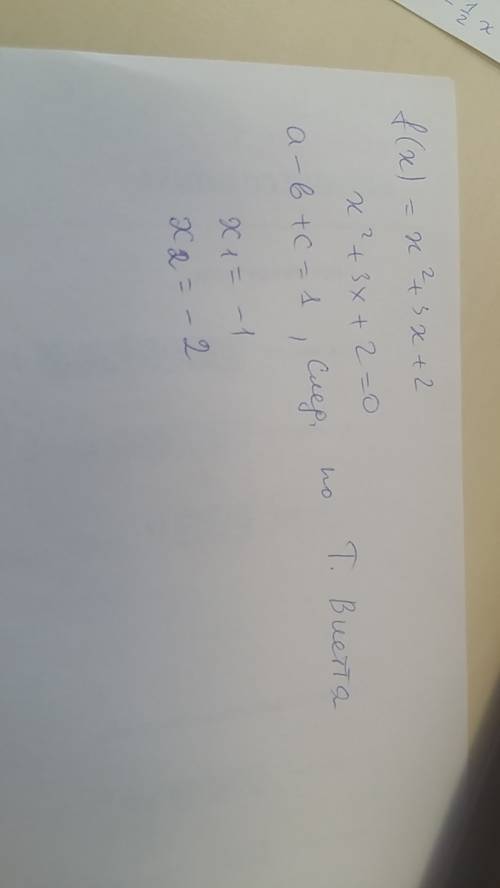 f(x) = x² + 3x + 2
x² + 3x + 2 = 0
a - b + c = 1, след. по Т. Виетта
x1 = -1
x2 = -2